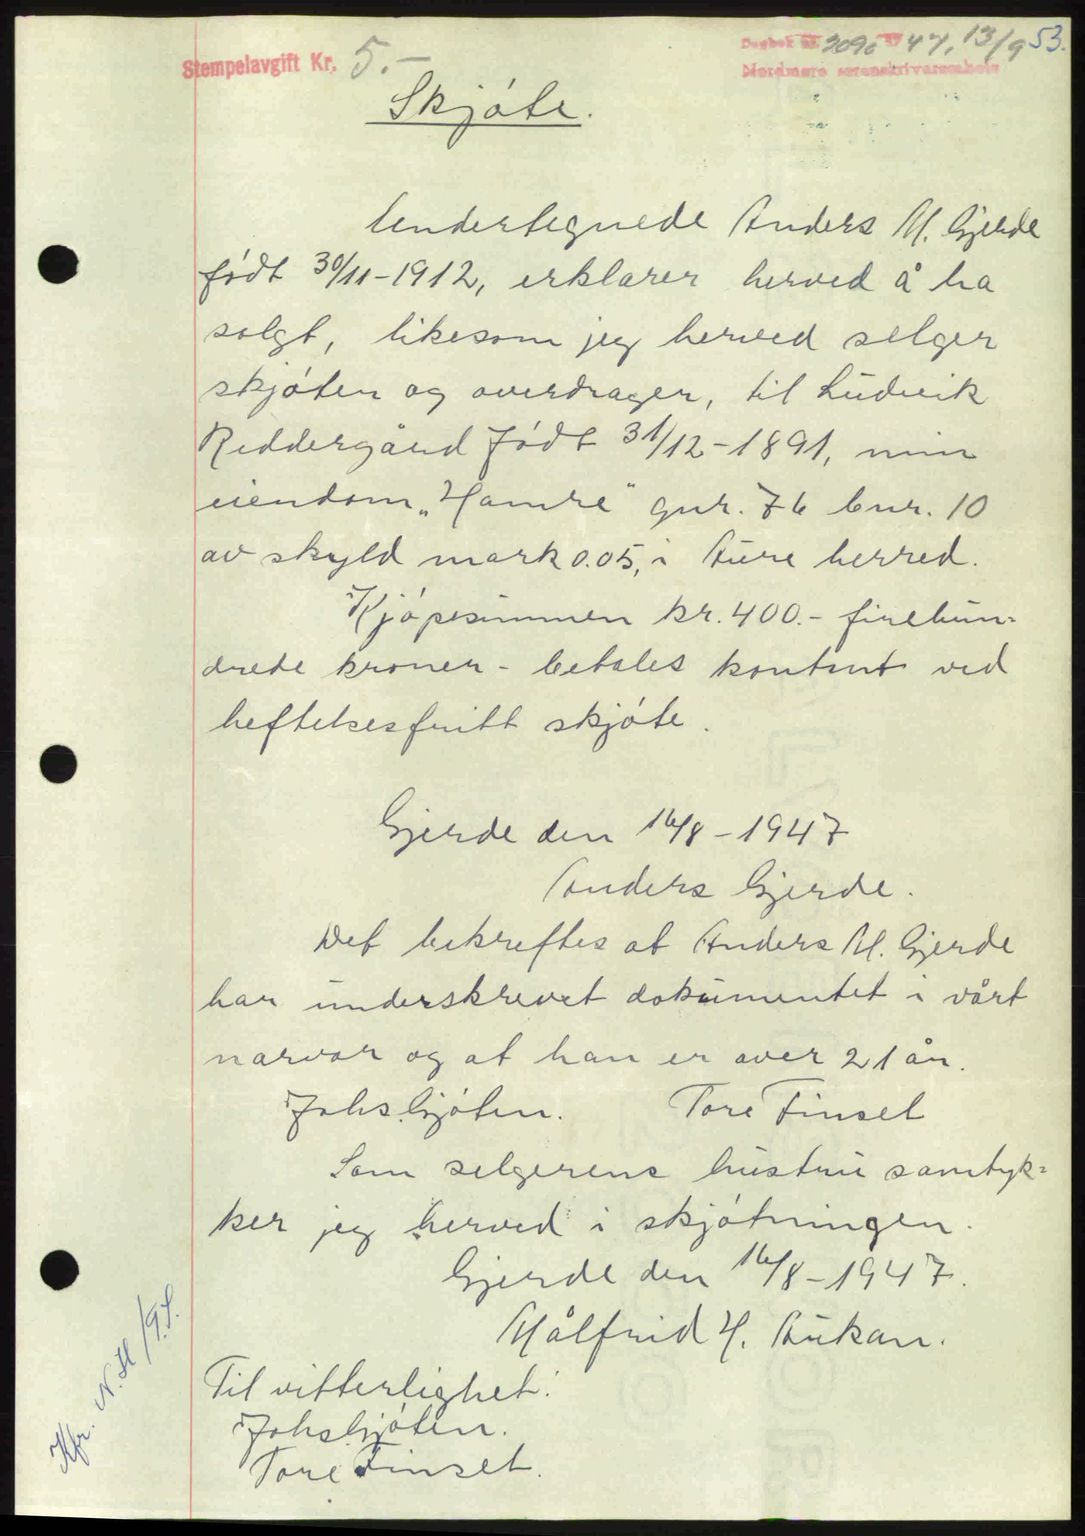 Stempelavgift Kr. 5.-
Dagbok nr. 2090 47, 13/9 53.
Nordmøre sorenskriverembete
Skjóte.
Undertegnede Anders M. Gjerde
født 30/11-1912, erklarer herved å ha
solgt, likesom jeg herved selger
skjóter og overdrager, til Ludvik
Riddergård født 31/12-1891, min
eiendom „Hamre" gnr. 76 bnr. 10
av skyld mark 0.05, i Aure herred.
Kjópesummen kr. 400.- firehun-
drede kroner - betales kontant ved
heftelsesfritt skjóte.
Gjerde den 16/8-1947
Anders Gjerde.
Det bekreftes at Anders M. Gjerde
har underskrevet dokumentet i vårt
narvar og at han er over 21 år.
Johs. Gjóten. Tore Finset
Som selgerens hustru samtyk-
ker jeg herved i skjótningen.
Gjerde den 16/8-1947.
Målfrid H. Aukan.
Til vitterlighet:
Johs. Gjóten.
Tore Finset.
Kfr. N. H/94.